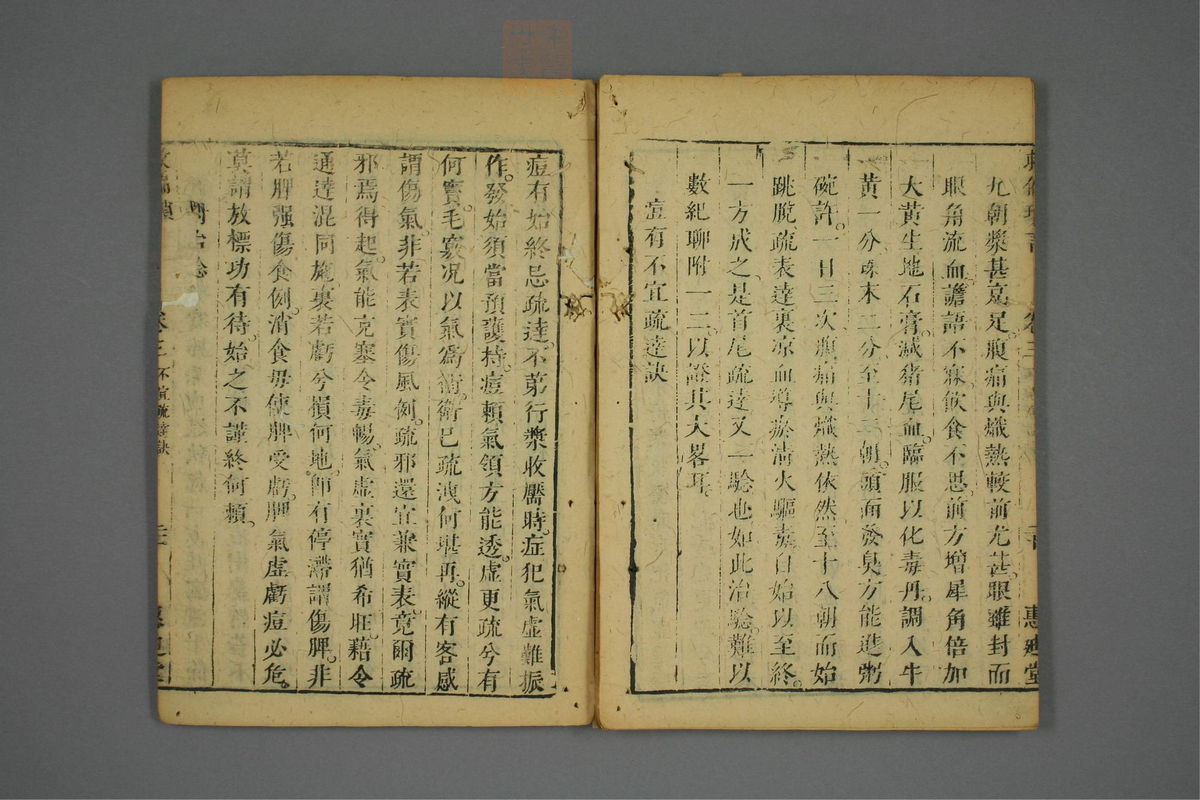 九朝漿甚寔足腹痛與熾熱較前尤甚眼雖封而
眼角流血譫語不寐飲食不思前方增犀角倍加
大黃生地石膏滅猪尾血臨服以化毒丹調入牛
黃一分珠末二分至十二朝頭面發臭方能進粥
碗許一日三次腹痛與熾熱依然至十八朝而始
跳脫疏表達裏凉血導瘀清火驅毒自始以至終
一方成之是首尾疏達又一驗也如此治驗難以
數紀聊附一二以證其大畧耳
痘有不宜疏達訣
卷三
惠廸堂
痘有始終忌疏達不第行漿收靨時症犯氣虛難振
作發始須當預護持痘賴氣領方能透虛更疏兮有
何實毛竅况以氣爲衛衛已疏洩何堪再縱有客感
謂傷氣非若表實傷風例疏邪還宜兼實表竟爾疏
邪焉得起氣能克塞令毒暢氣虛裏實猶希旺藉令
通達混同施裏若虧兮損何地卽有停滯謂傷脾非
若脾强傷食例消食毋使脾受虧脾氣虛虧痘必危
莫謂放標功有待始之不謹終何頼
卷三 不宜疏達訣